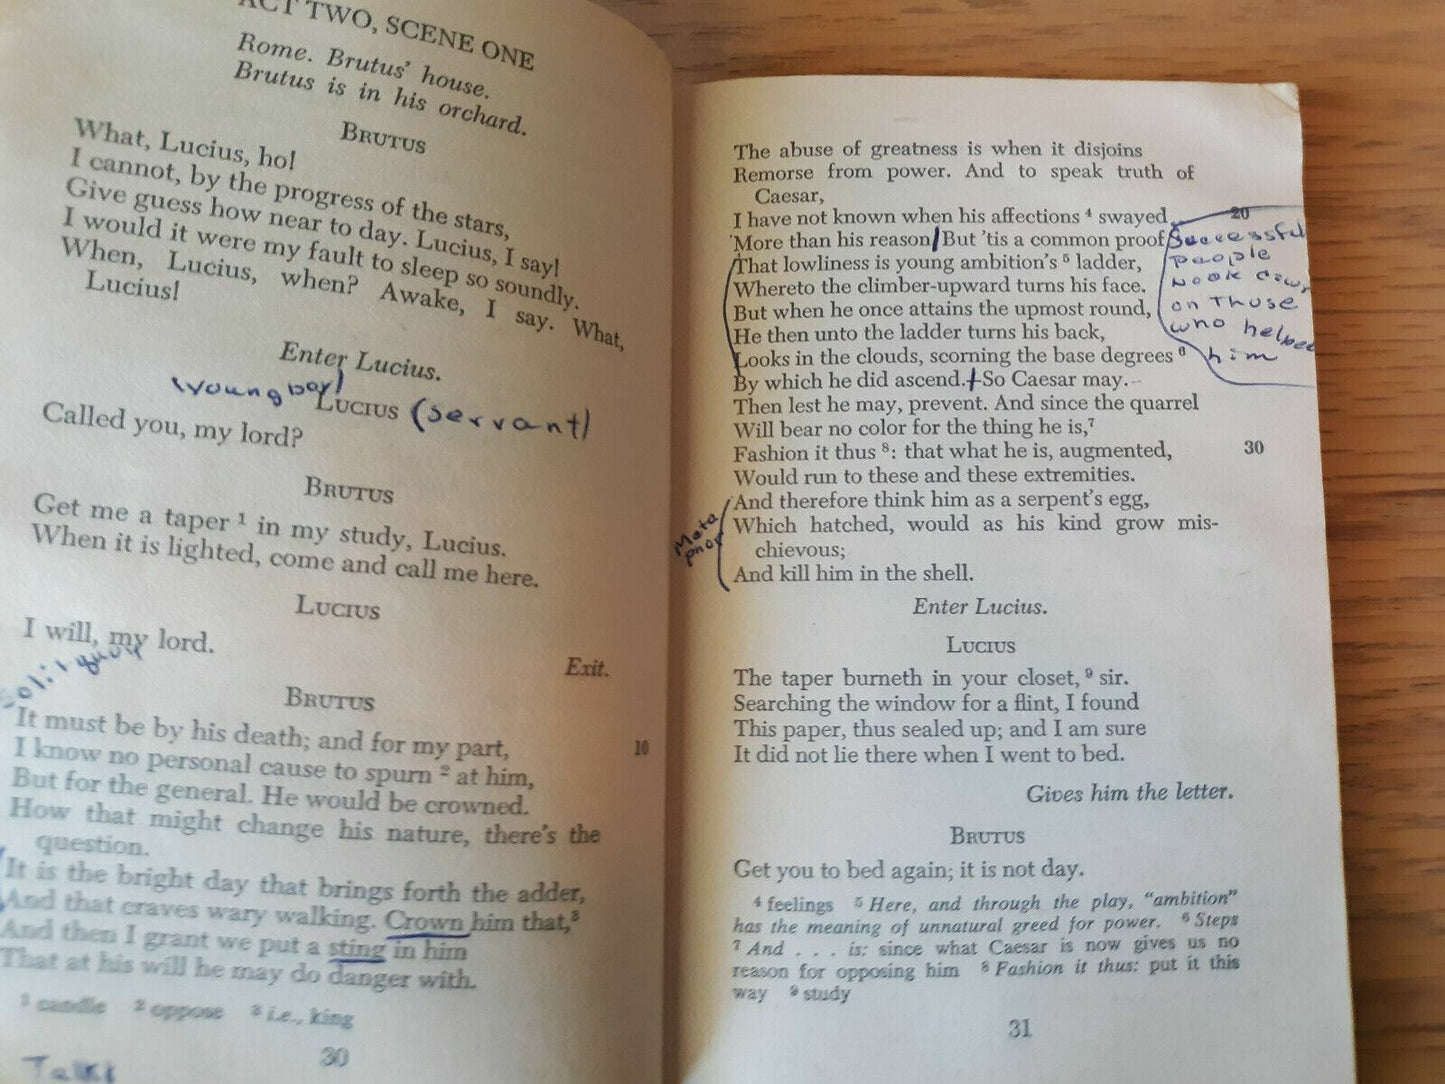 ACT TWO, SCENE ONE
Rome. Brutus' house.
Brutus is in his orchard.
BRUTUS
What, Lucius, ho!
I cannot, by the progress of the stars,
Give guess how near to day. Lucius, I say!
I would it were my fault to sleep so soundly.
When, Lucius, when? Awake, I say. What,
Lucius!
Enter Lucius.
(young boy)
LUCIUS (servant)
Called you, my lord?
BRUTUS
Get me a taper 1 in my study, Lucius.
When it is lighted, come and call me here.
LUCIUS
I will, my lord.
Exit.
Soliliquoy
BRUTUS
It must be by his death; and for my part, 10
I know no personal cause to spurn 2 at him,
But for the general. He would be crowned.
How that might change his nature, there's the
question.
It is the bright day that brings forth the adder,
And that craves wary walking. Crown him that,3
And then I grant we put a sting in him
That at his will he may do danger with.
1 candle 2 oppose 3 i.e., king
30
Talks
The abuse of greatness is when it disjoins
Remorse from power. And to speak truth of
Caesar,
I have not known when his affections 4 swayed 20
More than his reason/But 'tis a common proof
That lowliness is young ambition's 5 ladder,
Whereto the climber-upward turns his face.
But when he once attains the upmost round,
He then unto the ladder turns his back,
Looks in the clouds, scorning the base degrees 6
By which he did ascend. So Caesar may.
Successful
people
look down
on those
who helped
him
Then lest he may, prevent. And since the quarrel
Will bear no color for the thing he is,7
Fashion it thus 8: that what he is, augmented, 30
Would run to these and these extremities.
Meta
phor
And therefore think him as a serpent's egg,
Which hatched, would as his kind grow mis-
chievous;
And kill him in the shell.
Enter Lucius.
LUCIUS
The taper burneth in your closet, 9 sir.
Searching the window for a flint, I found
This paper, thus sealed up; and I am sure
It did not lie there when I went to bed.
Gives him the letter.
BRUTUS
Get you to bed again; it is not day.
4 feelings 5 Here, and through the play, "ambition"
has the meaning of unnatural greed for power. 6 Steps
7 And . . . is: since what Caesar is now gives us no
reason for opposing him 8 Fashion it thus: put it this
way 9 study
31